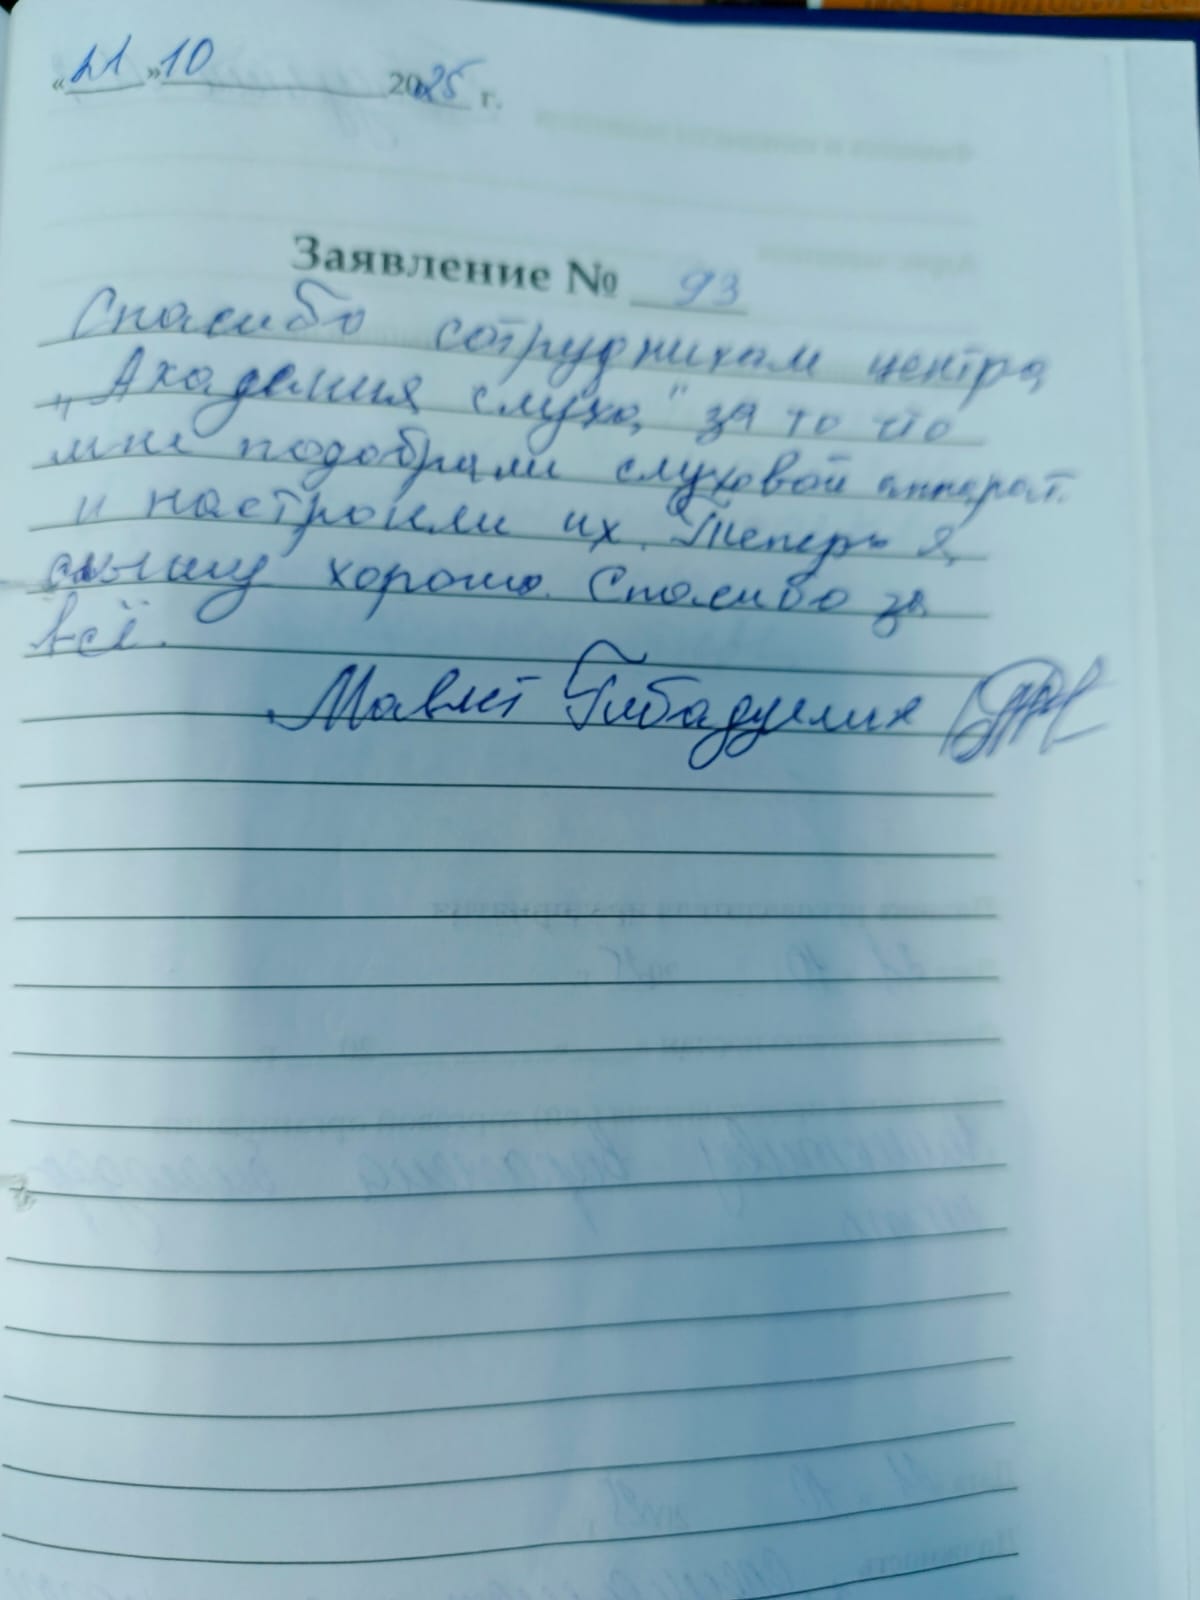 «21» 10 2025 г.
Заявление № 93
Спасибо сотрудникам центра
„Академия слуха," за то что
мне подобрали слуховой аппарат.
и настроили их. Теперь я,
слышу хорошо. Спасибо за
всё.
Мавлет Гибадуллин